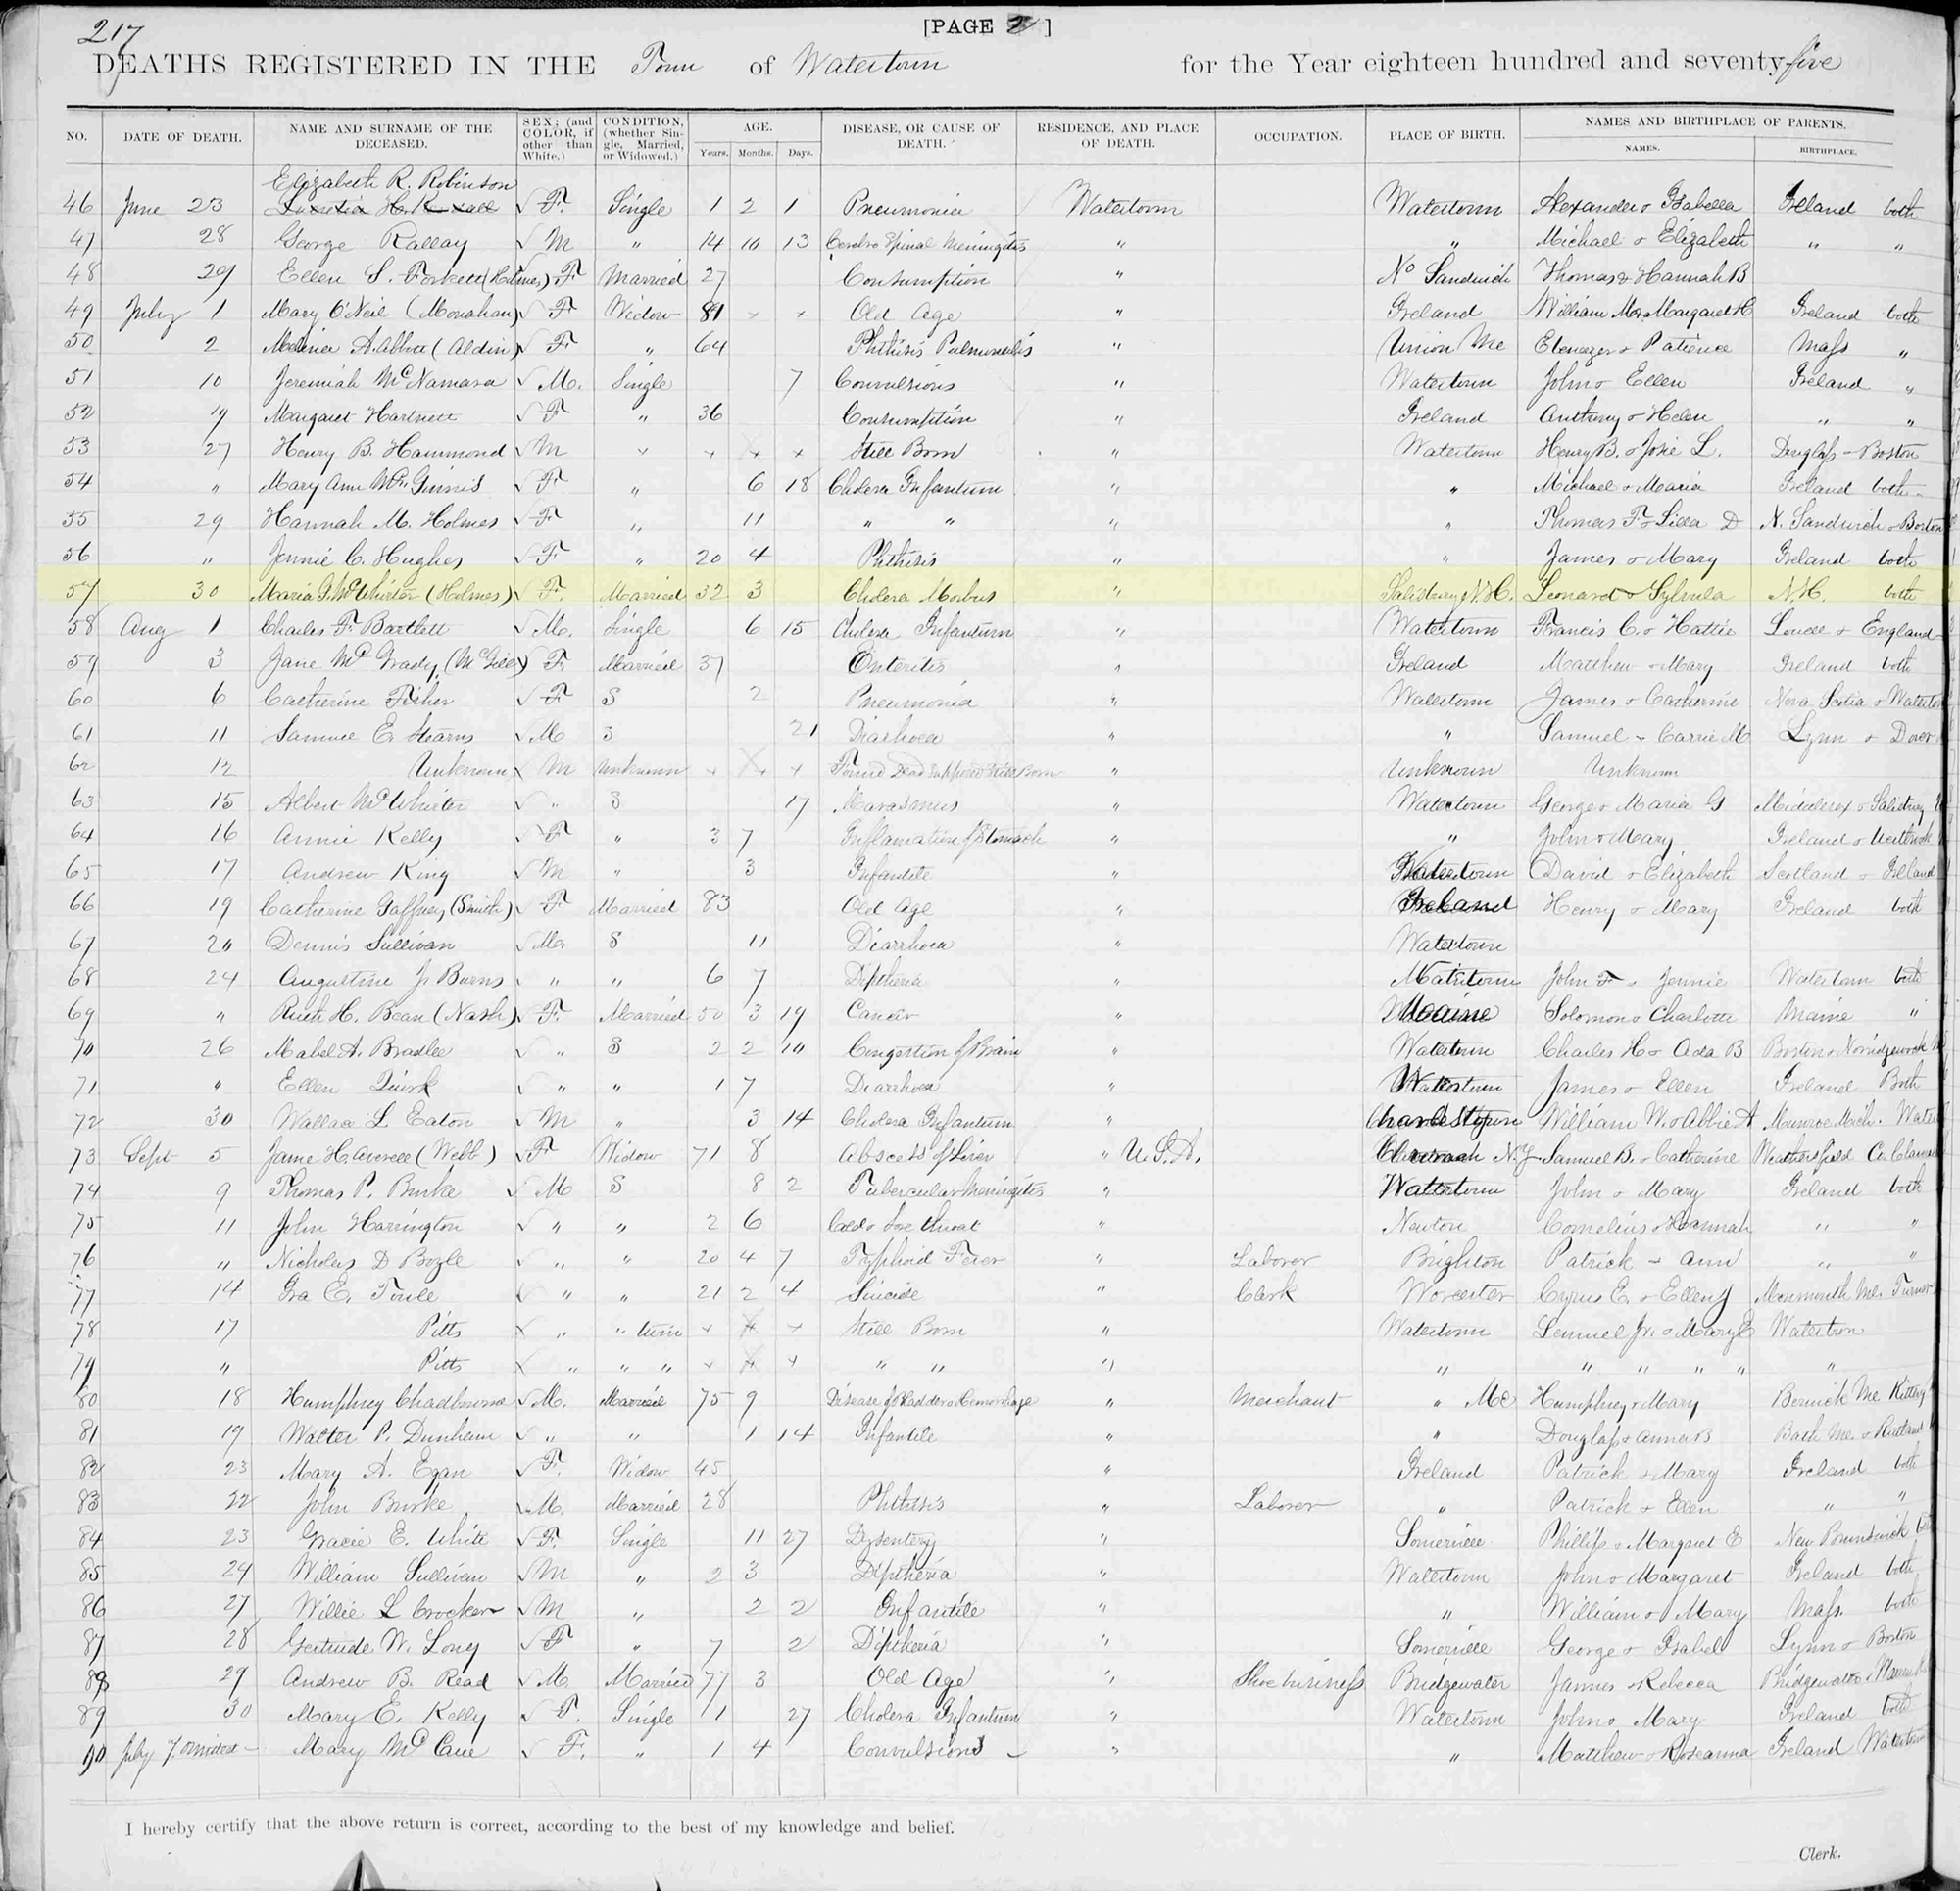 217
[PAGE 2]
DEATHS REGISTERED IN THE Town of Watertown for the Year eighteen hundred and seventy-five
NO. DATE OF DEATH. NAME AND SURNAME OF THE DECEASED. SEX; (and COLOR, if other than White.) CONDITION, (whether Single, Married, or Widowed.) AGE. Years. Months. Days. DISEASE, OR CAUSE OF DEATH. RESIDENCE, AND PLACE OF DEATH. OCCUPATION. PLACE OF BIRTH. NAMES AND BIRTHPLACE OF PARENTS. NAMES. BIRTHPLACE.
Elizabeth R. Robinson
46 June 23 F. Single 1 2 1 Pneumonia Watertown Watertown Alexander & Isabella Ireland both
47 28 George Rallay √ M " 14 10 13 Cerebro Spinal Meningitis " " Michael & Elizabeth " "
48 29 Ellen S. (Holmes) F Married 27 Consumption " No Sandwich Thomas & Hannah B
49 July 1 Mary O'Neil (Monahan) √ F Widow 81 Old Age " Ireland William M. & Margaret H Ireland both
50 2 A. Abbott (Aldin) √ F " 64 Phthisis Pulmonalis " Union Me Ebenezer & Patience Mass "
51 10 Jeremiah McNamara √ M. Single 7 Convulsions " Watertown John & Ellen Ireland "
52 19 Margaret Hartnett √ F " 36 Consumption " Ireland Anthony & Helen " "
53 27 Henry B. Hammond √ M Still Born " Watertown Henry B. & Josie L. Douglass - Boston
54 " Mary Ann McGinnis √ F " 6 18 Cholera Infantum " " Michael & Maria Ireland both
55 29 Hannah M. Holmes √ F " 11 " " " " Thomas F. & Lilla D N. Sandwich & Boston
56 " Jennie C. Hughes √ F " 20 4 Phthisis " " James & Mary Ireland both
57 30 Maria G. McWhirter (Holmes) √ F. Married 32 3 Cholera Morbus " Salisbury N.H. Leonard & Sylvula N.H. both
58 Aug 1 Charles F. Bartlett √ M. Single 6 15 Cholera Infantum " Watertown Francis C. & Hattie Lowell & England
59 3 Jane McGrady (McGill) √ F. Married 37 Enteritis " Ireland Matthew & Mary Ireland both
60 6 Catherine Fisher √ F S 2 Pneumonia " Watertown James & Catherine Nova Scotia & Watertown
61 11 Samuel E. Stearns √ M S 21 Diarhoea " " Samuel & Carrie M Lynn & Dover
62 12 Unknown M Unknown Found Dead supposed Still Born " Unknown Unknown
63 15 Albert McWhirter √ " S 17 Marasmus " Watertown George & Maria G Middlesex & Salisbury
64 16 Annie Kelly √ F " 3 7 Inflamation of Stomach " " John & Mary Ireland &
65 17 Andrew King √ M " 3 Infantile " Watertown David & Elizabeth Scotland & Ireland
66 19 Catherine Gaffney (Smith) √ F Married 83 Old Age " Ireland Henry & Mary Ireland both
67 20 Dennis Sullivan √ M. S 11 Diarrhoea " Watertown
68 24 Augustine J. Burns " " 6 7 Diptheria " Watertown John F & Jennie Watertown both
69 " Ruth H. Bean (Nash) √ F. Married 50 3 19 Cancer " Maine Solomon & Charlotte Maine "
70 26 Mabel A. Bradlee √ " S 2 2 10 Congestion of Brain " Watertown Charles H & Ada B Boston & Norridgewock
71 " Ellen Quirk √ " " 1 7 Diarrhoea " Watertown James & Ellen Ireland Both
72 30 Wallace L. Eaton √ M " 3 14 Cholera Infantum " Charlestown William W. & Abbie A Munroe Mich.
73 Sept 5 Jane H. (Webb) √ F Widow 71 8 Abscess of Liver " U.S.A. N.Y. Samuel B. & Catherine Weathersfield Ct.
74 9 Thomas P. Burke √ M S 8 2 Tubercular Meningitis " Watertown John & Mary Ireland both
75 11 John Harrington √ " " 2 6 Cold & Sore throat " Newton Cornelius & Hannah " "
76 " Nicholas D Bogle √ " " 20 4 7 Typhoid Fever " Laborer Brighton Patrick & Ann " "
77 14 Ira E. Towle √ " " 21 2 4 Suicide " Clerk Worcester Cyrus E. & Ellen Monmouth Me. Turner
78 17 Pitts " " twin Still Born " Watertown Lemuel Jr. & Mary E Watertown
79 " Pitts " " " " " " " " " " " "
80 18 Humphrey Chadbourne √ M. Married 75 9 Disease of Bladder & Hemorhage " Merchant " Me Humphrey & Mary Berwick Me. Kittery
81 19 Walter P. Dunham √ " " 1 14 Infantile " " Douglass & Anna B Bath Me. & Rutland
82 23 Mary A. Egan √ F. Widow 45 " Ireland Patrick & Mary Ireland both
83 22 John Burke √ M. Married 28 Phthisis " Laborer " Patrick & Ellen " "
84 23 Gracie E. White √ F. Single 11 27 Dysentery " Somerville Phillip & Margaret E New Brunswick both
85 24 William Sullivan √ M " 2 3 Diptheria " Watertown John & Margaret Ireland both
86 27 Willie L Crocker √ M " 2 2 Infantile " " William & Mary Mass. both
87 28 Gertrude W. Long √ F " 7 2 Diptheria " Somerville George & Isabel Lynn & Boston
88 29 Andrew B. Read √ M. Married 77 3 Old Age " Shoe business Bridgewater James & Rebecca Bridgewater
89 30 Mary E. Kelly √ F. Single 1 27 Cholera Infantum " Watertown John & Mary Ireland both
90 July 7 omitted Mary McCue √ F. " 1 4 Convulsions " " Matthew & Roseanna Ireland Watertown
I hereby certify that the above return is correct, according to the best of my knowledge and belief.
Clerk.